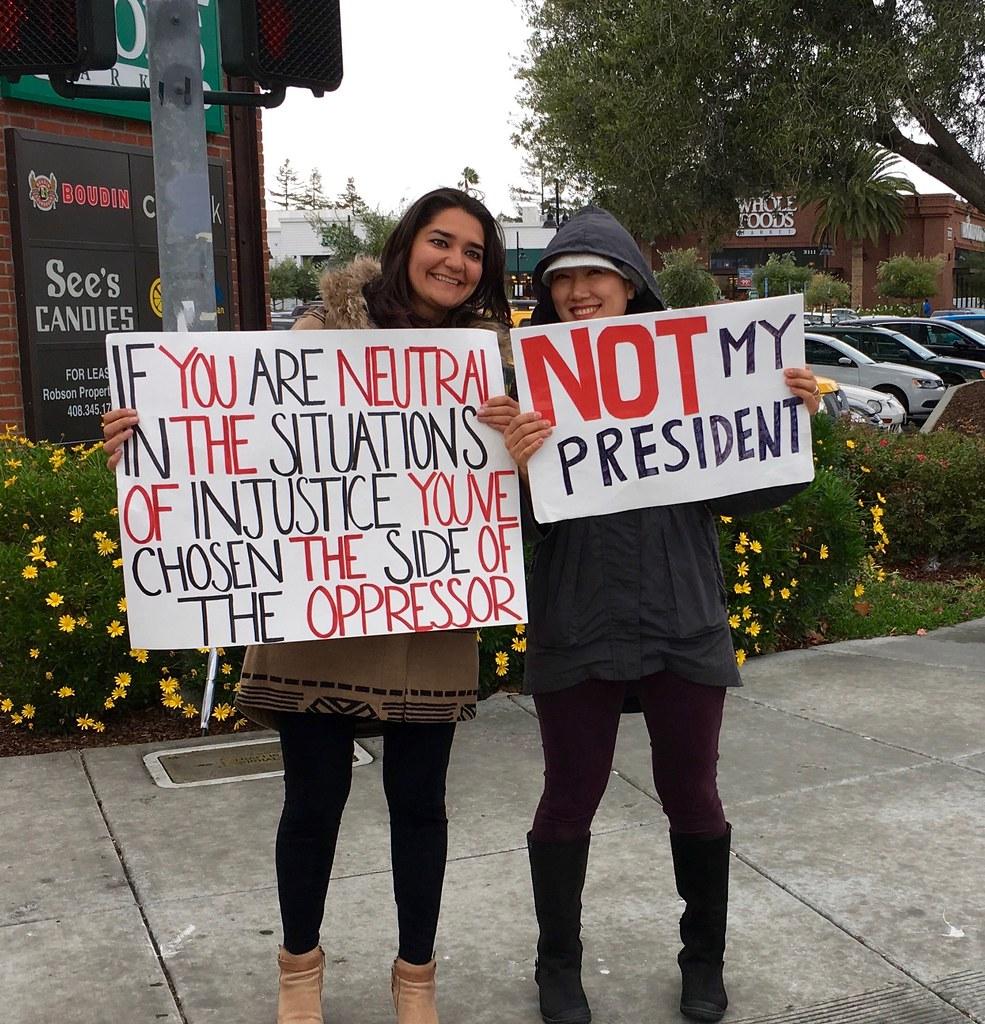 BOUDIN
See's
CANDIES
FOR LEAS
Robson Propert
408.345.17
WHOLE
FOODS
MARKET
3111
IF YOU ARE NEUTRAL
IN THE SITUATIONS
OF INJUSTICE YOU'VE
CHOSEN THE SIDE OF
THE OPPRESSOR
NOT MY
PRESIDENT